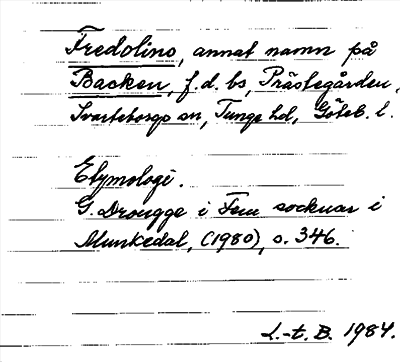 Fredolino, annat namn på
Backen, f.d. bs, Prästegården,
Svarteborgs sn, Tunge hd, Göteb. l.
Etymologi.
G. Drougge i Fem socknar i
Munkedal, (1980), s. 346.
L.-t. B. 1984.